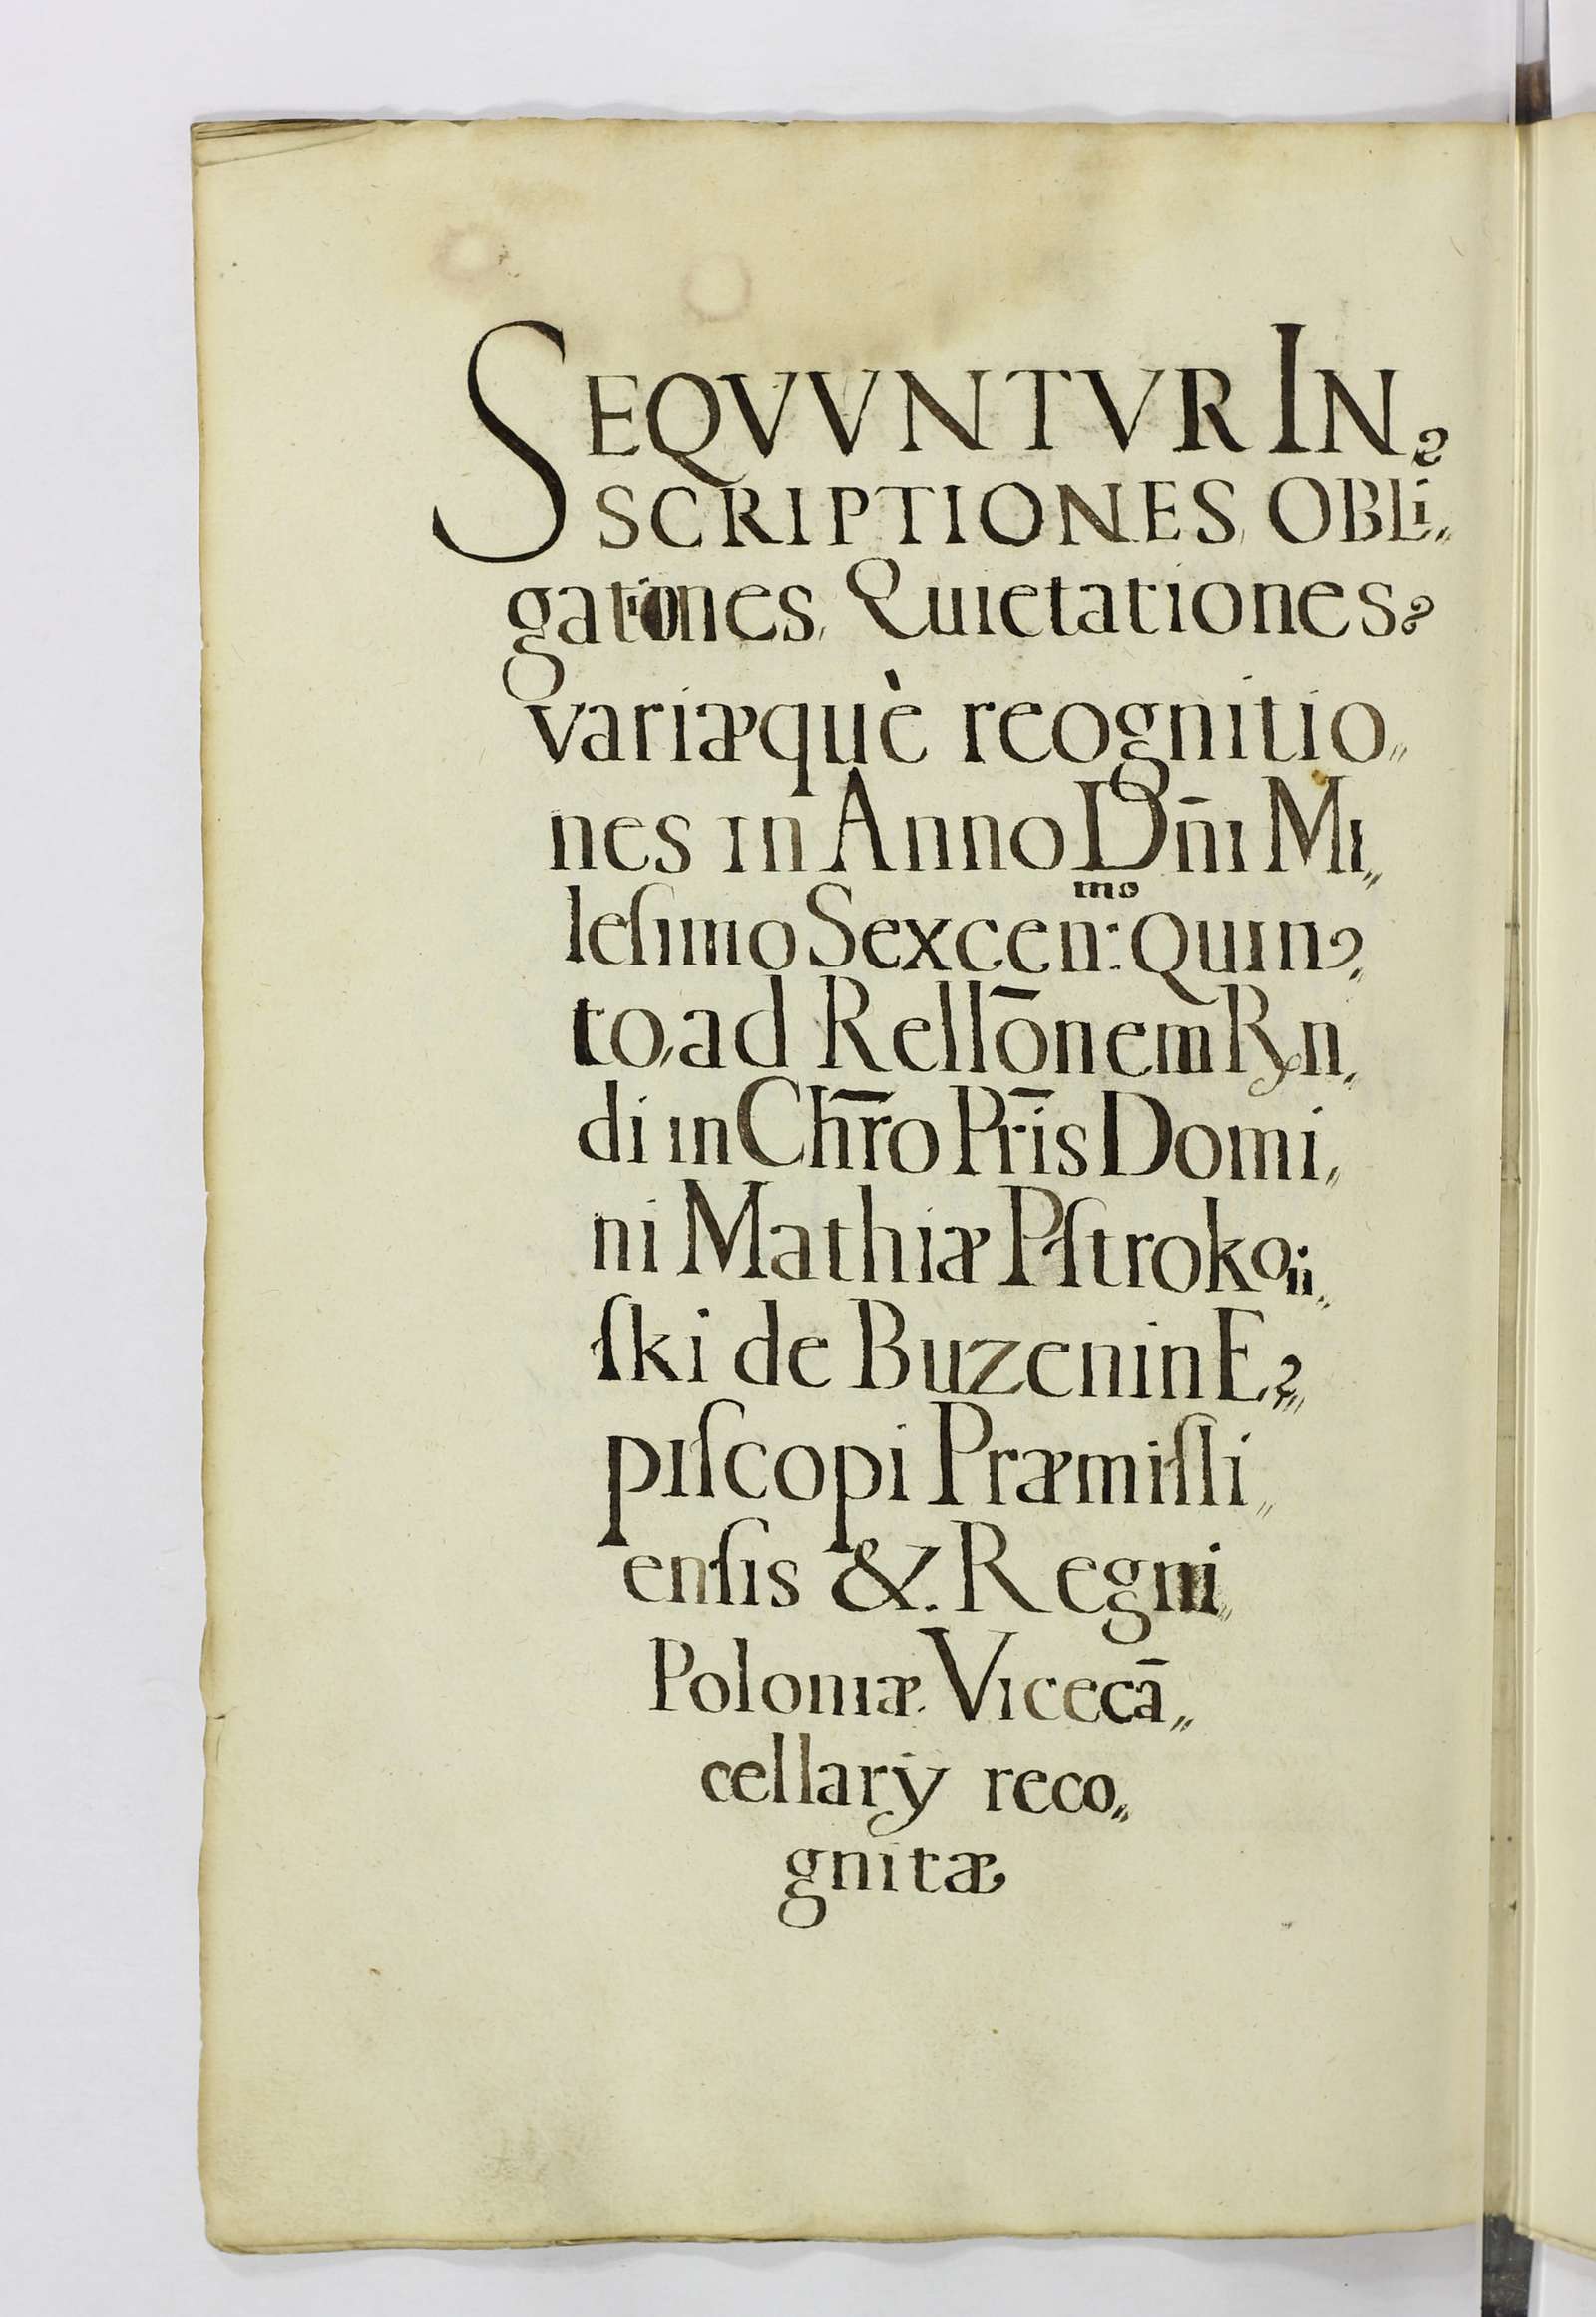 SEQVVNTVR IN
SCRIPTIONES, OBLi„
gationes, Quietationes
variæquè reognitio„
nes in Anno Dn̄i Mi„
leſimo Sexcen:mo Quin
to, ad Rellōnem Rn„
di in Chr̄o Pr̄is Domi„
ni Mathiæ Pſtrokoń„
ſki de Buzenin E„
piſcopi Præmiſli„
enſis &. Regni„
Poloniæ Vicecā„
cellarÿ reco„
gnitæ